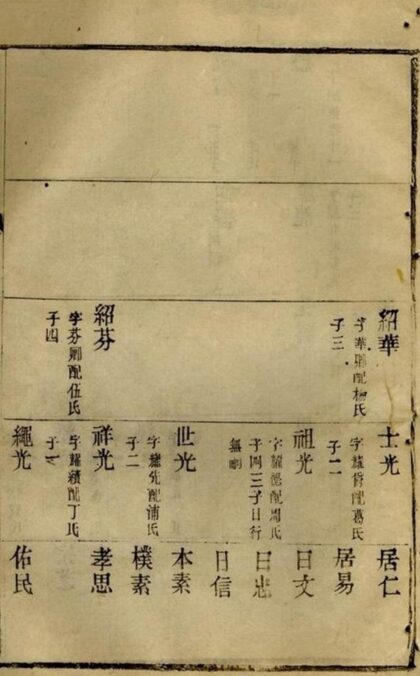 紹華
字華卿配楊氏
子三
紹芬
字芬卿配伍氏
子四
士光
字耀配葛氏
子二
祖光
字耀配周氏
子四三子日行
無嗣
世光
字耀先配浦氏
子二
祥光
字耀配丁氏
子
繩光
居仁
居易
日文
日忠
日信
本素
樸素
孝思
佑民